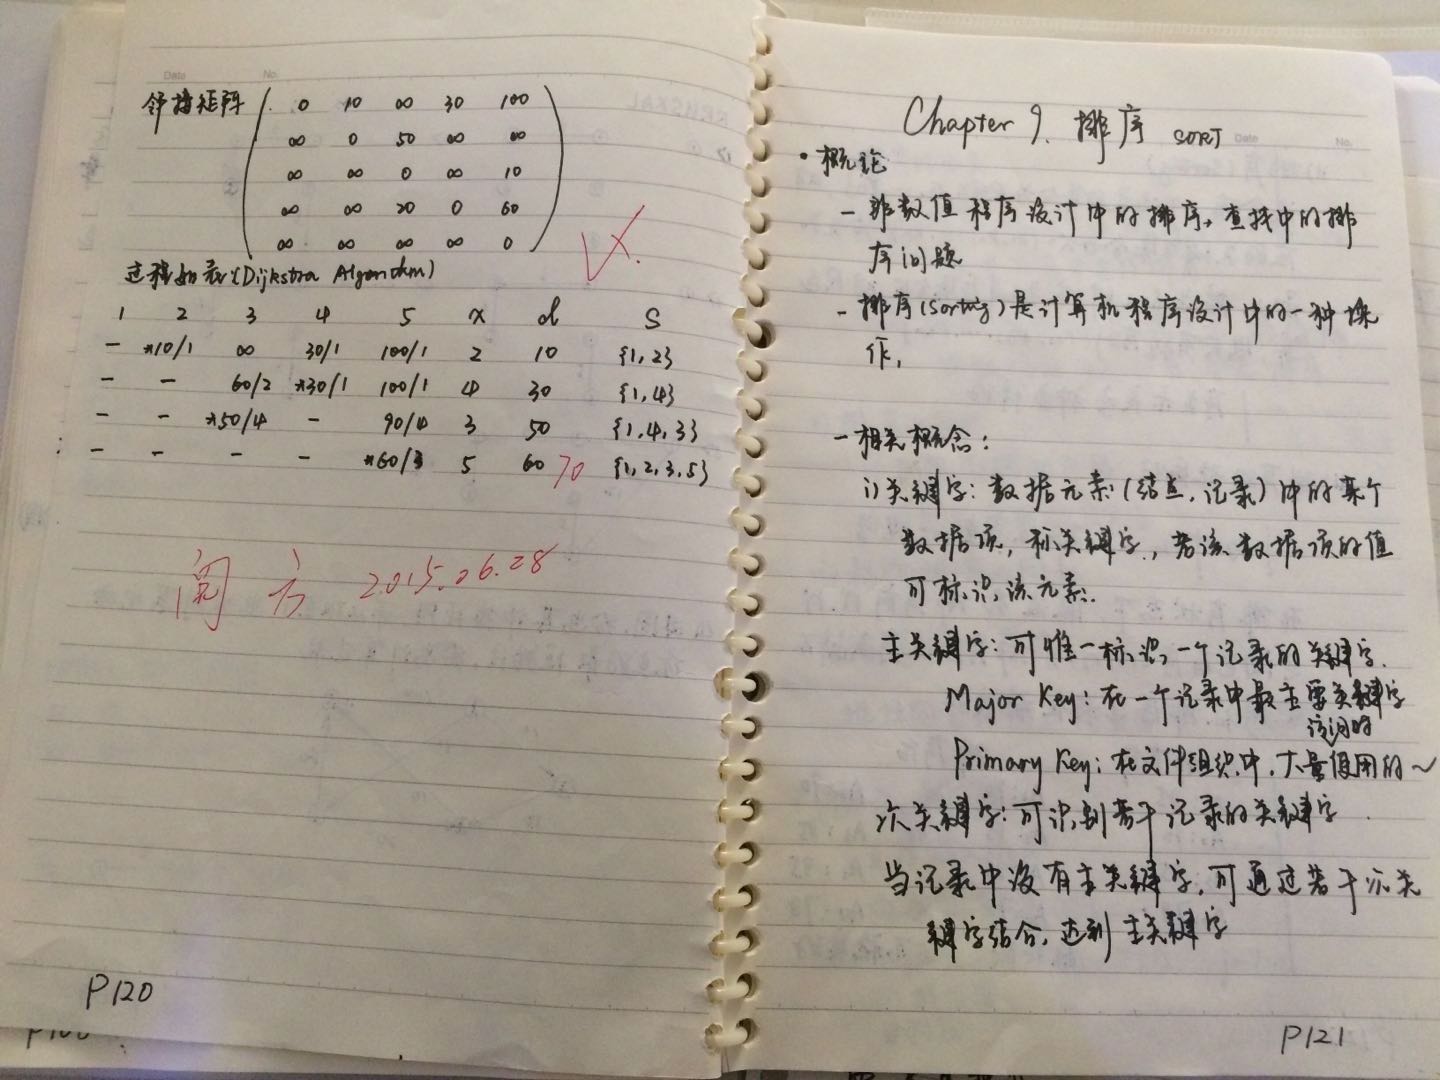 Date No.
邻接矩阵 0 10 ∞ 30 100
∞ 0 50 ∞ ∞
∞ ∞ 0 ∞ 10
∞ ∞ 20 0 60
∞ ∞ ∞ ∞ 0
过程如表(Dijkstra Algorithm)
1 2 3 4 5 x d S
- *10/1 ∞ 30/1 100/1 2 10 {1,2}
- - 60/2 *30/1 100/1 4 30 {1,4}
- - *50/4 - 90/4 3 50 {1,4,3}
- - - - *60/3 5 60 70 {1,2,3,5}
阅 方 2015.06.28
P120
Date No.
Chapter 9. 排序 SORT
• 概论
- 非数值程序设计中的排序,查找中的排
序问题
- 排序(sorting)是计算机程序设计中的一种操
作,
- 相关概念:
1)关键字:数据元素(结点,记录)中的某个
数据项,称关键字,若该数据项的值
可标识该元素.
主关键字:可惟一标识一个记录的关键字.
Major Key:在一个记录中最主要关键字
Primary Key:在文件组织中,大量使用的~
次关键字:可识别若干记录的关键字
当记录中没有主关键字,可通过若干次关
键字结合,达到主关键字
P121